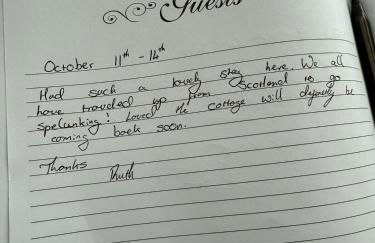 Guests
October 11th - 14th
Had such a lovely stay here. We all
have traveled up from Scotland to go
spelunking! Loved the cottage will definitely be
coming back soon.
Thanks
Ruth